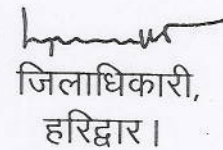 जिलाधिकारी,
हरिद्वार।